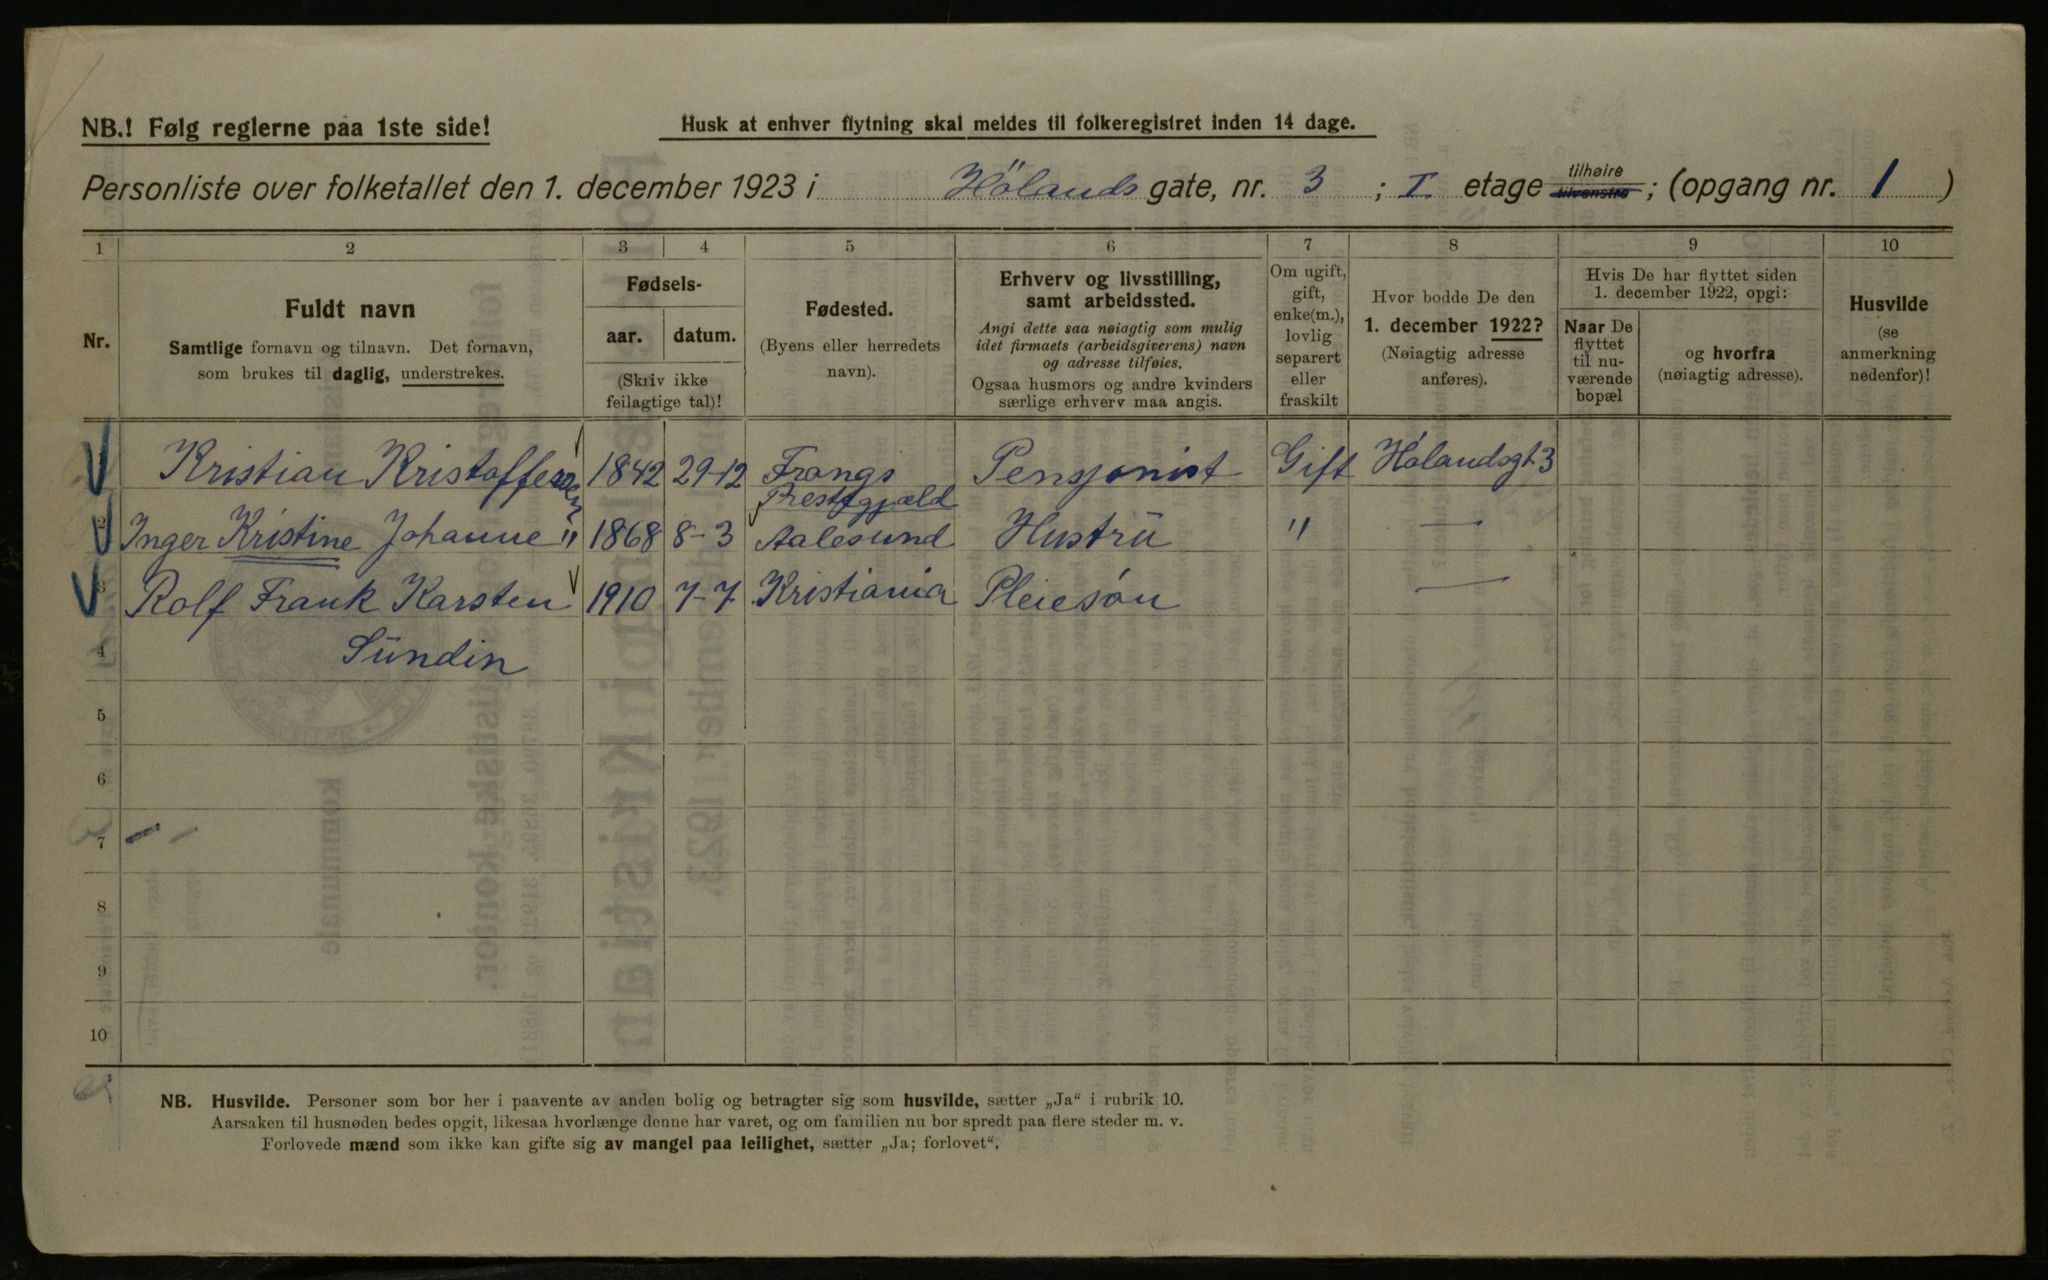 NB.! Følg reglerne paa 1ste side!
Husk at enhver flytning skal meldes til folkeregistret inden 14 dage.
Personliste over folketallet den 1. december 1923 i Hölands gate, nr. 3 ; I. etage tilhøire tilvenstre ; (opgang nr. 1 )
1 2 3 4 5 6 7 8 9 10
Nr.
Fuldt navn
Samtlige fornavn og tilnavn. Det fornavn,
som brukes til daglig, understrekes.
Fødsels-
aar. datum.
(Skriv ikke
feilagtige tal)!
Fødested.
(Byens eller herredets
navn).
Erhverv og livsstilling,
samt arbeidssted.
Angi dette saa nøiagtig som mulig
idet firmaets (arbeidsgiverens) navn
og adresse tilføies.
Ogsaa husmors og andre kvinders
særlige erhverv maa angis.
Om ugift,
gift,
enke(m.),
lovlig
separert
eller
fraskilt
Hvor bodde De den
1. december 1922?
(Nøiagtig adresse
anføres).
Hvis De har flyttet siden
1. december 1922, opgi:
Naar De
flyttet
til nu-
værende
bopæl
og hvorfra
(nøiagtig adresse).
Husvilde
(se
anmerkning
nedenfor)!
Kristian Kristoffersen 1842 29-12 Frongs Prestegjæld Pensjonist Gift Hölandsgt. 3
2 Inger Kristine Johanne " 1868 8-3 Aalesund Hustrü " —
3 Rolf Frank Karsten 1910 7-7 Kristiania Pleiesön —
4 Sündin
5
6
7
8
9
10
NB. Husvilde. Personer som bor her i paavente av anden bolig og betragter sig som husvilde, sætter „Ja“ i rubrik 10.
Aarsaken til husnøden bedes opgit, likesaa hvorlænge denne har varet, og om familien nu bor spredt paa flere steder m. v.
Forlovede mænd som ikke kan gifte sig av mangel paa leilighet, sætter „Ja; forlovet“.